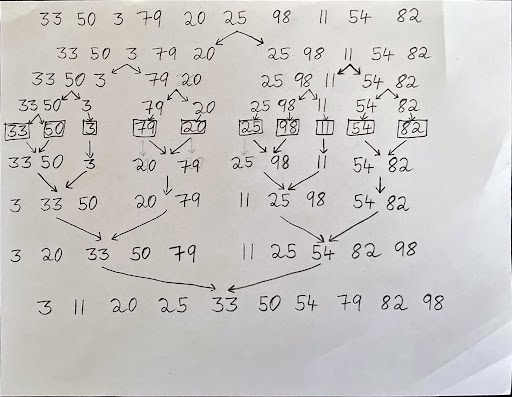 33 50 3 79 20 25 98 11 54 82
33 50 3 79 20 25 98 11 54 82
33 50 3 79 20 25 98 11 54 82
33 50 3 79 20 25 98 11 54 82
33 50 3 79 20 25 98 11 54 82
33 50 3 20 79 25 98 11 54 82
3 33 50 20 79 11 25 98 54 82
3 20 33 50 79 11 25 54 82 98
3 11 20 25 33 50 54 79 82 98